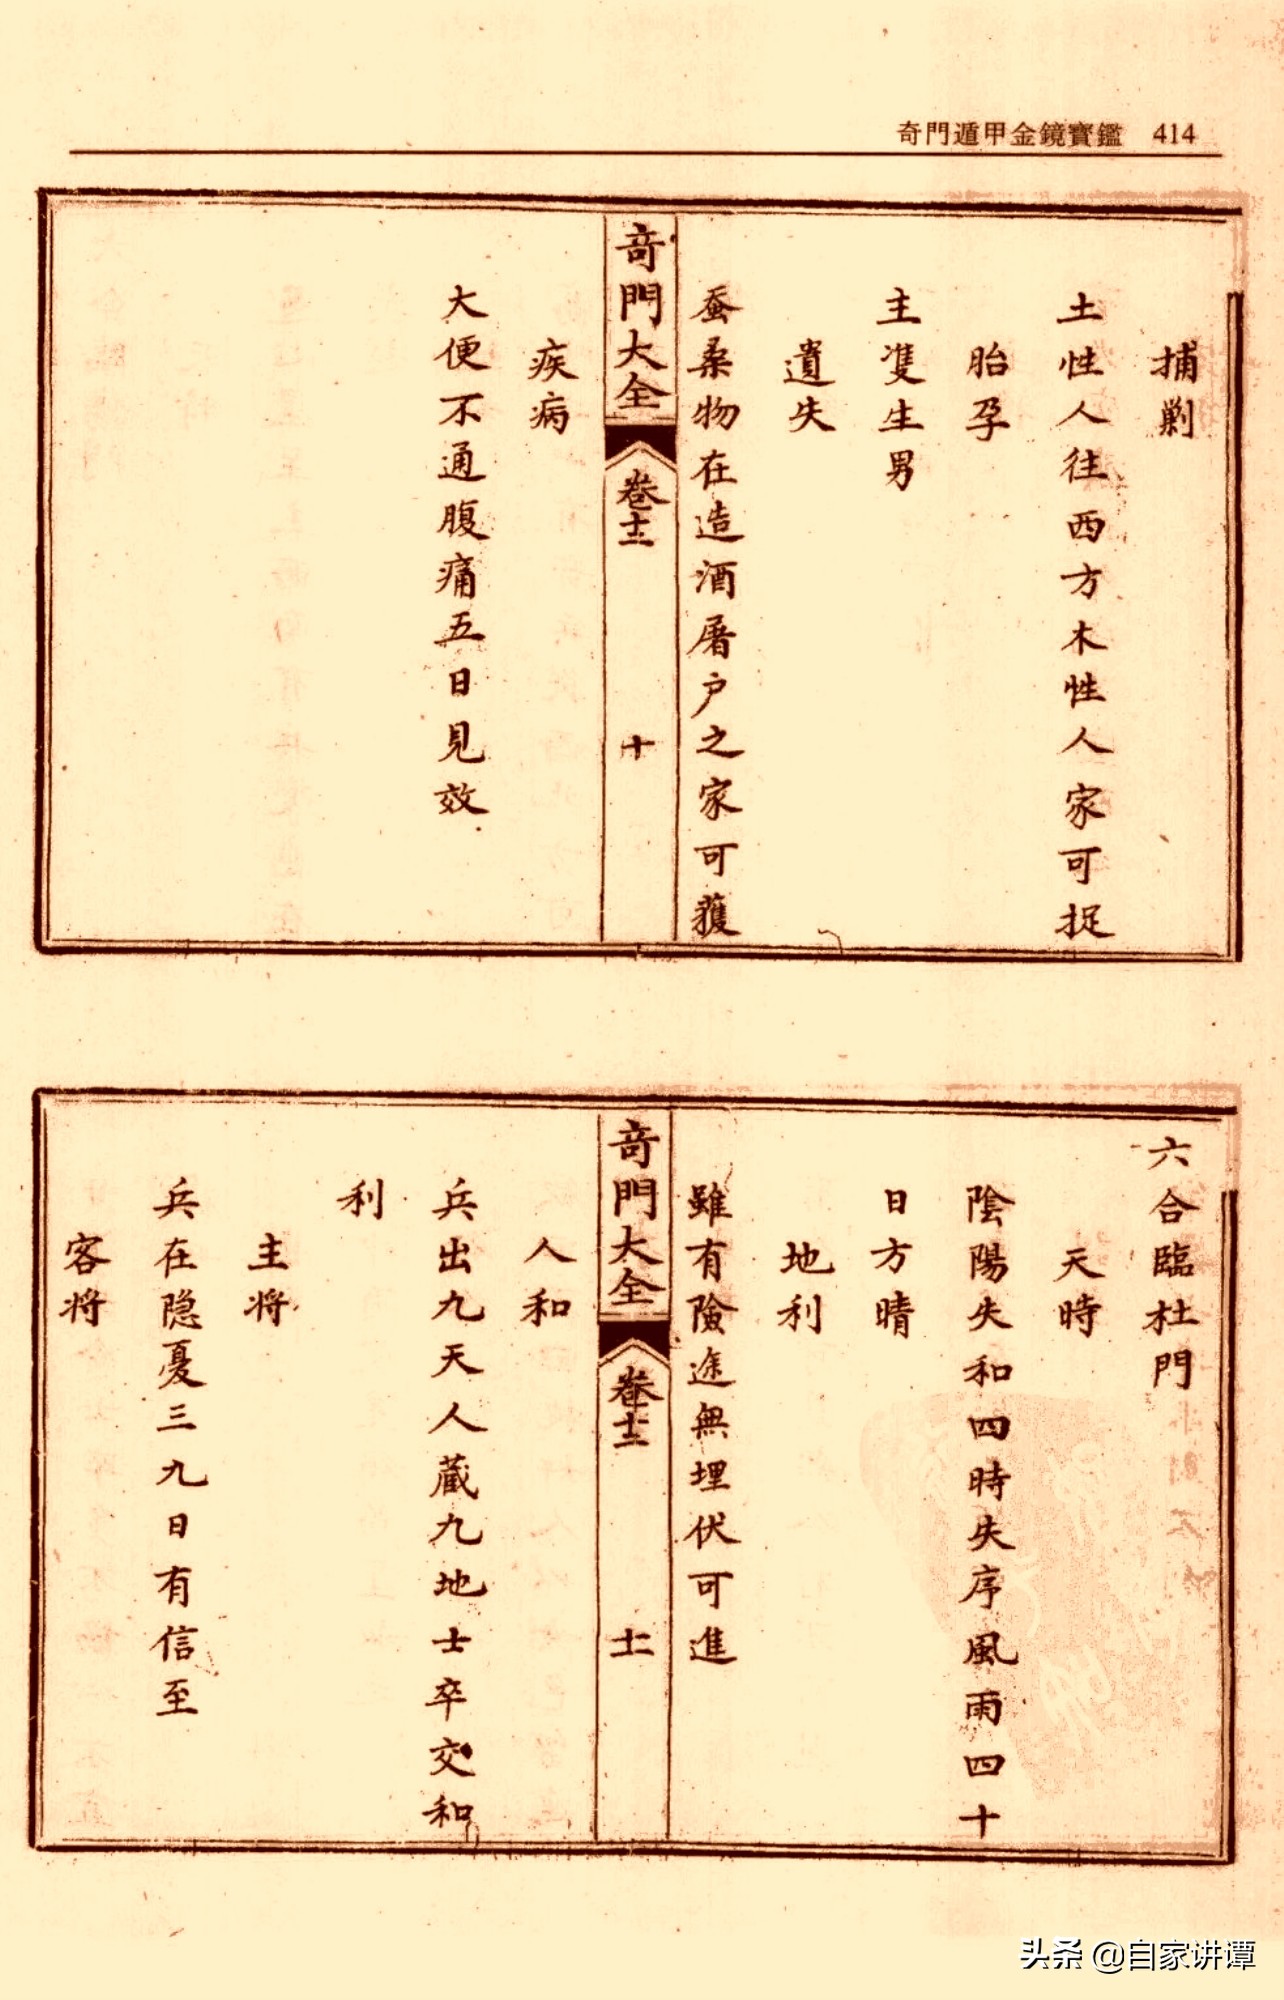 奇門遁甲金鏡寶鑑 414
捕剿
土性人往西方木性人家可捉
胎孕
主隻生男
遺失
蚕桑物在造酒屠户之家可獲
奇門大全 卷十二 十
疾病
大便不通腹痛五日見效
六合臨杜門
天時
陰陽失和四時失序風雨四十
日方晴
地利
雖有險途無埋伏可進
奇門大全 卷十二 十一
人和
兵出九天人藏九地士卒交和
利
主将
兵在隐憂三九日有信至
客将
头条 @自家讲谭